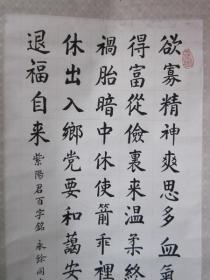 欲寡精神爽思多血氣
得富從儉裏来温柔終
禍胎暗中休使箭乖裡
休出入鄉党要和萬安
退福自来
紫陽君百字銘